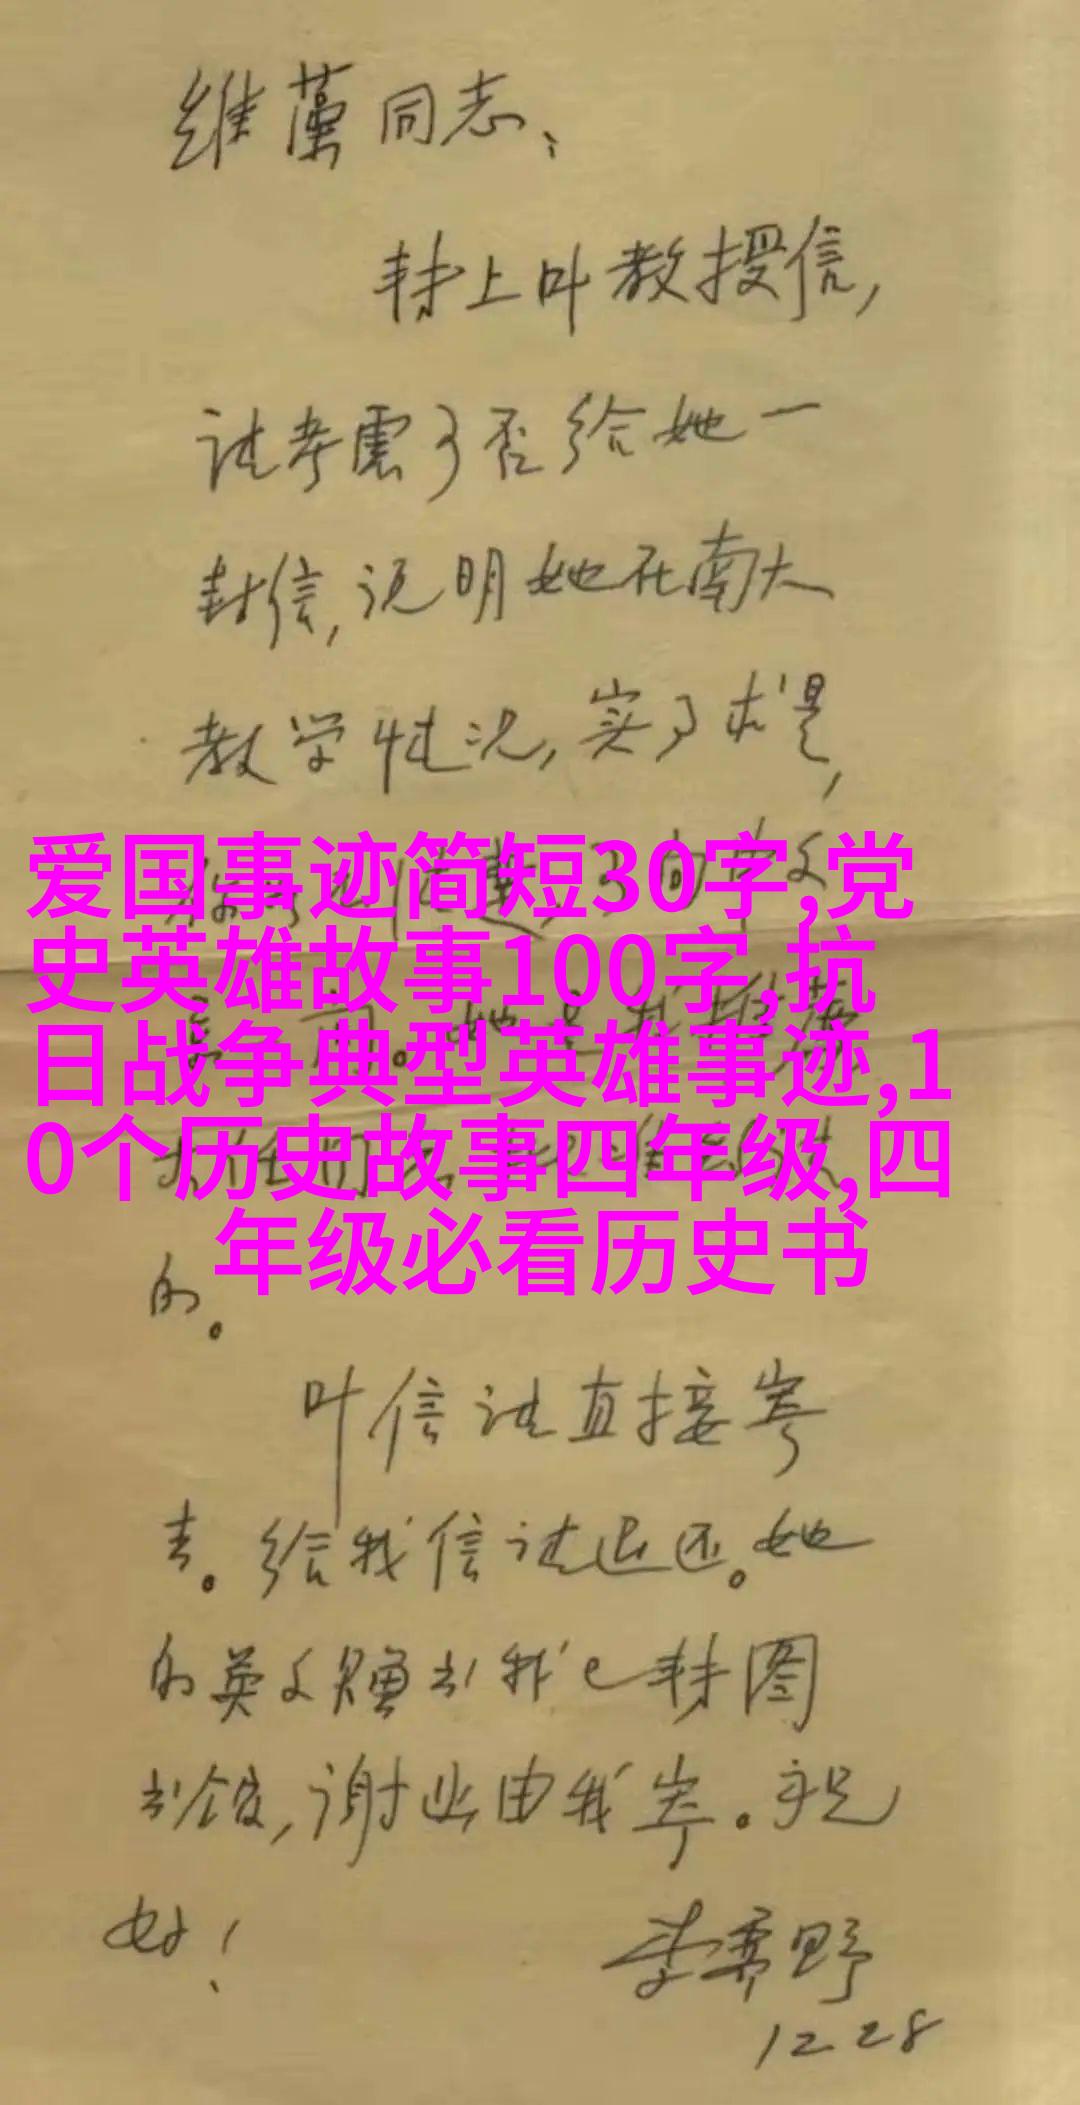 维藻同志：
转上叶教授信，
请考虑可否给她一
封信，说明她在南大
教学情况，实事求是，
爱国事迹简短30字,党
史英雄故事100字,抗
日战争典型英雄事迹,1
0个历史故事四年级,四
年级必看历史书
的。
叶信请直接寄
去。给我信请退还。她
的英文赠书我已转图
书馆，谢也由我寄。祝
好！
李霁野
12 28